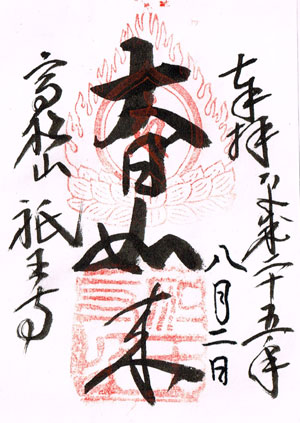 奉拝 平成二十五年
八月二日
大日如来
高松山 祇王寺